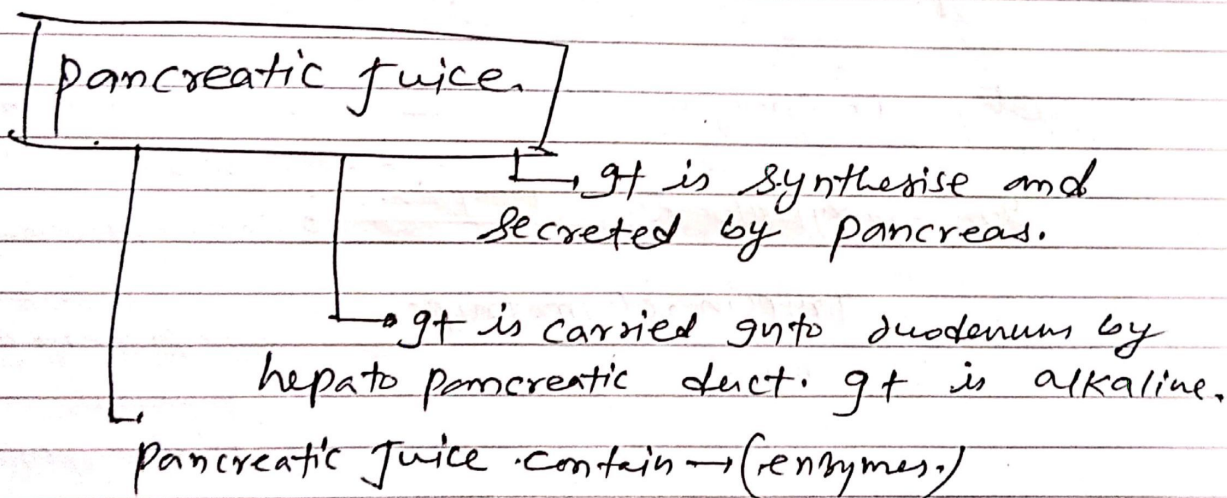 Pancreatic Juice.
It is synthesise and
secreted by pancreas.
It is carried into duodenum by
hepato pancreatic duct. It is alkaline.
Pancreatic Juice contain → (enzymes.)